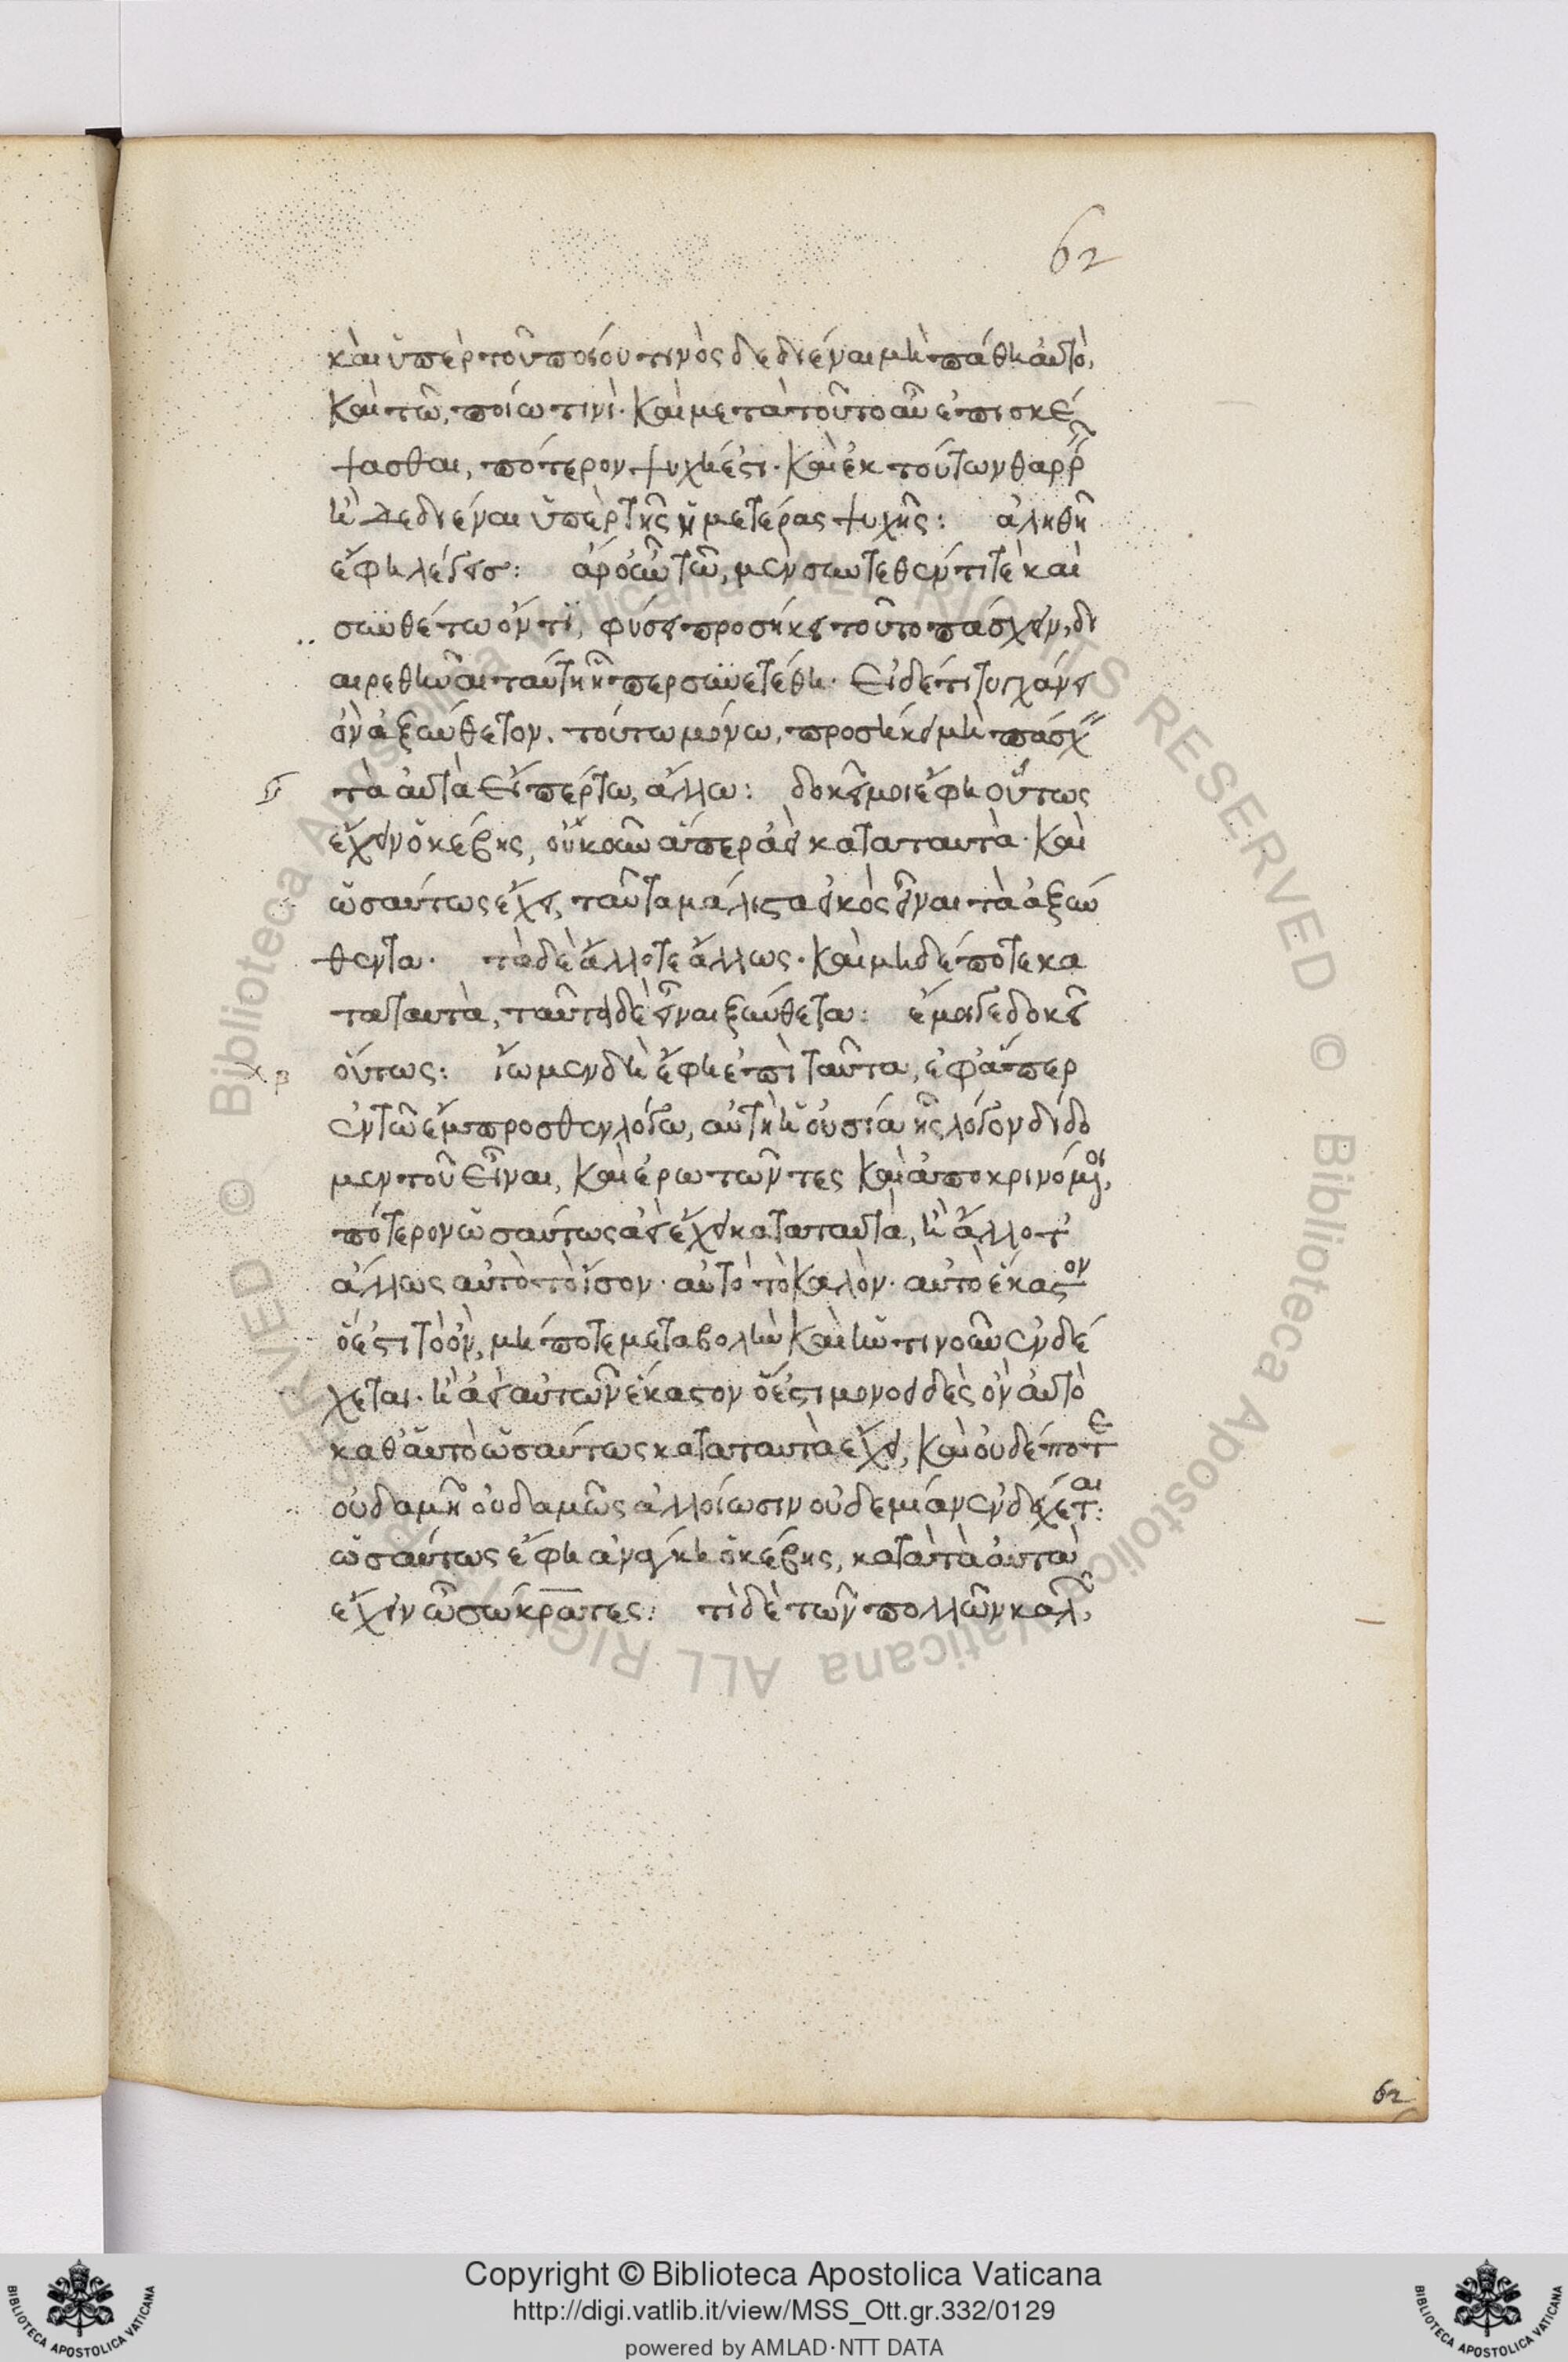 62
καὶ ὑπὲρ τοῦ ποίου τινὸς δεδιέναι μὴ πάθη αὐτὸ,
καὶ τῶ, ποίω τινὶ· καὶ μετὰ τοῦτο αὖ ἐπισκέ
ψασθαι, πότερον ψυχή ἐστι· καὶ ἐκ τούτων θαρρεῖν
ἢ δεδιέναι ὑπὲρ τῆς ἡμετέρας ψυχῆς: ἀληθῆ
ἔφη λέγεις: ἆρ' οὖν τῶ, μὲν συντεθέντι τὲ καὶ
συνθέτω ὄντι, φύσει προσήκει τοῦτο πάσχειν, δι
αιρεθῆναι ταύτη ἧπερ συνετέθη· εἰ δέ τι τυγχάνει
ὂν ἀξύνθετον, τούτω μόνω, προσήκει μὴ πάσχειν
τὰ αὐτὰ εἴπέρ τω, ἄλλω: δοκεῖ μοι ἔφη οὕτως
ἔχειν ὁ κέβης, οὐκοῦν ἅπερ ἀεὶ κατα ταυτὰ· καὶ
ὡσαύτως ἔχει, ταῦτα μάλιστα εἰκὸς εἶναι τὰ ἀξύν
θετα· τὰ δὲ ἄλλοτε ἄλλως· καὶ μηδέποτε κα
τα ταυτὰ, ταῦτα δὲ εἶναι ξύνθετα: ἔμοιγε δοκεῖ
οὕτως: ἴωμεν δὴ ἔφη ἐπὶ ταῦτα, ἐφ' ἅπερ
ἐν τῶ ἔμπροσθεν λόγω, αὐτὴ ἡ οὐσία ἧς λόγον δίδο
μεν τοῦ εἶναι, καὶ ἐρωτῶντες καὶ ἀποκρινόμενοι,
πότερον ὡσαύτως ἀεὶ ἔχει κατα ταυτὰ, ἢ ἄλλοτ'
ἄλλως αὐτὸ τὸ ἴσον· αὐτὸ τὸ καλὸν· αὐτὸ ἕκαστον
ὅ ἐστι τὸ ὂν, μήποτε μεταβολὴν καὶ ἡντινοῦν ἐνδέ
χεται· ἢ ἀεὶ αὐτῶν ἕκαστον ὅ ἐστι μονοειδὲς ὂν αὐτὸ
καθ' αὑτὸ ὡσαύτως κατα ταυτὰ ἔχει, καὶ οὐδέποτε
οὐδαμῆ οὐδαμῶς ἀλλοίωσιν οὐδεμίαν ἐνδέχεται:
ὡσαύτως ἔφη ἀνάγκη ὁ κέβης, κατὰ τὰ αὐτὰ
ἔχειν ὦ σώκρατες: τί δὲ τῶν πολλῶν καλῶν,
62
Copyright © Biblioteca Apostolica Vaticana
http://digi.vatlib.it/view/MSS_Ott.gr.332/0129
powered by AMLAD·NTT DATA